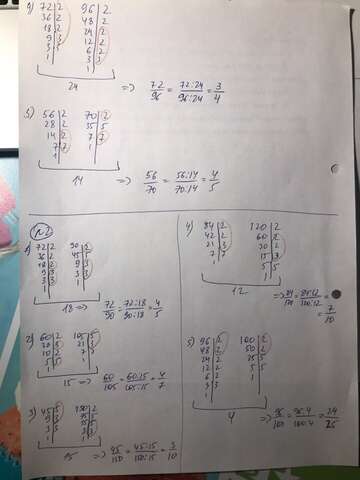 4) 72|2 96|2
36|2 48|2
18|2 24|2
9|3 12|2
3|3 6|2
1 3|3
1
24 => 72/96 = 72:24/96:24 = 3/4
5) 56|2 70|2
28|2 35|5
14|2 7|7
7|7 1
1
14 => 56/70 = 56:14/70:14 = 4/5
n2
1) 72|2 90|2
36|2 45|5
18|2 9|3
9|3 3|3
3|3 1
1
18 => 72/90 = 72:18/90:18 = 4/5
2) 60|2 105|5
21|3
10|2 7|7
5|5 1
1
15 => 60/105 = 60:15/105:15 = 4/7
3) 45|5 150|2
9|3
3|3
1
=> 45/150 = 45:15/150:15 = 3/10
4) 84|2 120|2
42|2 60|2
21|3 30|2
7|7 15|3
5|5
1
12 => = 7/10
5) 96|2 100|2
48|2 50|2
24|2 25|5
12|2 5|5
6|2 1
3|3
1
4 => 96/100 = 96:4/100:4 = 24/25